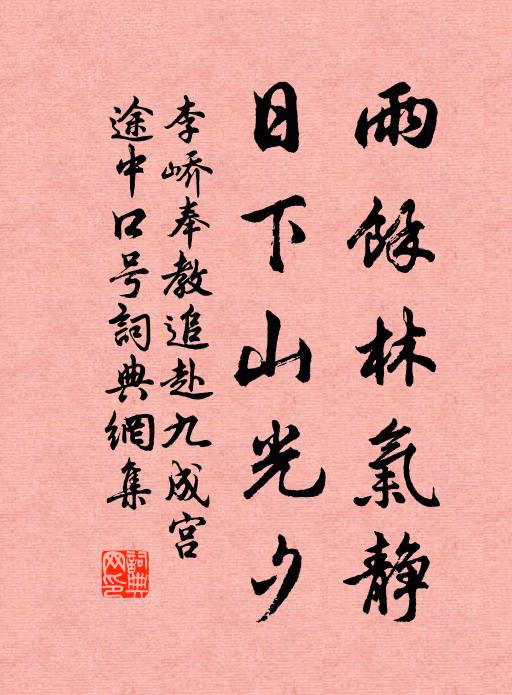 雨餘林氣靜
日下山光夕
李嶠奉教追赴九成宫
途中口号詞典網集
詞典
网印